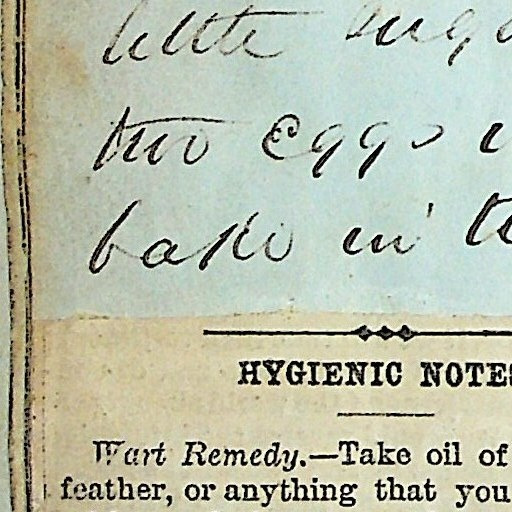 little sug
two eggs
bake in
HYGIENIC NOTES
Wart Remedy.—Take oil of
feather, or anything that you